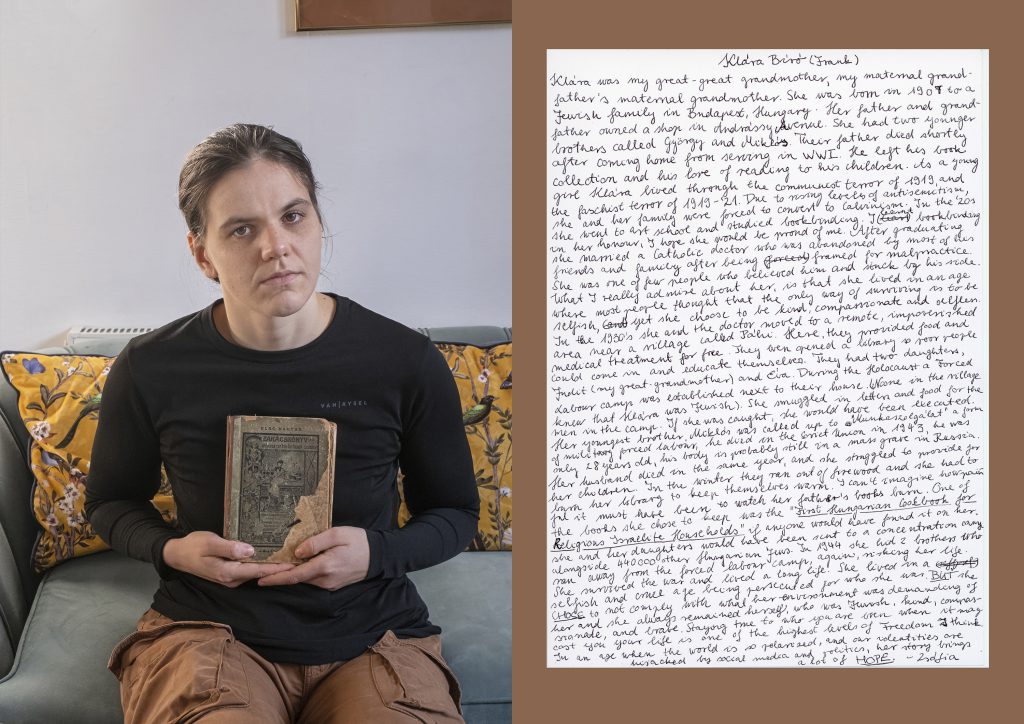 VAN|RYSEL
ZAKÁCSKÖNYV
Klára Bíró (Frank)
Klára was my great-great grandmother, my maternal grand-
father's maternal grandmother. She was born in 1907 to a
Jewish family in Budapest, Hungary. Her father and grand-
father owned a shop in Andrássy Avenue. She had two younger
brothers called György and Miklós. Their father died shortly
after coming home from serving in WWI. He left his book
collection and his love of reading to his children. As a young
girl Klára lived through the communist terror of 1919, and
the faschist terror of 1919-21. Due to rising levels of antisemitism,
she and her family were forced to convert to Calvinism. In the '20s
she went to art school and studied bookbinding. I learnd bookbinding
in her honour, I hope she would be proud of me. After graduating
she married a Catholic doctor who was abandoned by most of his
friends and family after being (forced) framed for malpractice.
She was one of few people who believed him and stuck by his side.
What I really admire about her, is that she lived in an age
where most people thought that the only way of surviving is to be
selfish, (and) yet she choose to be kind, compassionate and selfless.
In the 1930's she and the doctor moved to a remote, impoverished
area near a village called Páhi. Here, they provided food and
medical treatment for free. They even opened a library so poor people
could come in and educate themselves. They had two daughters,
Judit (my great-grandmother) and Éva. During the Holocaust a Forced
Labour camp was established next to their house. (Noone in the village
knew that Klára was Jewish). She smuggled in letters and food for the
men in the camp. If she was caught, she would have been executed.
Her youngest brother, Miklós was called up to "Munkaszolgálat" a form
of military forced labour, he died in the Soviet Union in 1943, he was
only 28 years old, his body is probably still in a mass grave in Russia.
Her husband died in the same year, and she struggled to provide for
her children. In the winter they ran out of firewood and she had to
burn her library to keep themselves warm. I can't imagine how pain
ful it must have been to watch her father's books burn. One of
the books she chose to keep was the "First Hungarian Cookbook for
Religious Israelite Households" if anyone would have found it on her,
she and her daughters would have been sent to a concentration camp
alongside 440000 other Hungarian Jews. In 1944 she hid 2 brothers who
ran away from the forced labour camp, again, risking her life.
She survived the war and lived a long life. She lived in a
selfish and cruel age being persecuted for who she was. BUT she
CHOSE to not comply with what her environment was demanding of
her and she always remained herself, who was Jewish, kind, compas-
sionate, and brave. Staying true to who you are even when it may
cost you your life is one of the highest levels of Freedom I think.
In an age when the world is so polarised, and our identities are
hijacked by social media and politics, her story brings
a lot of HOPE. - Zsófia